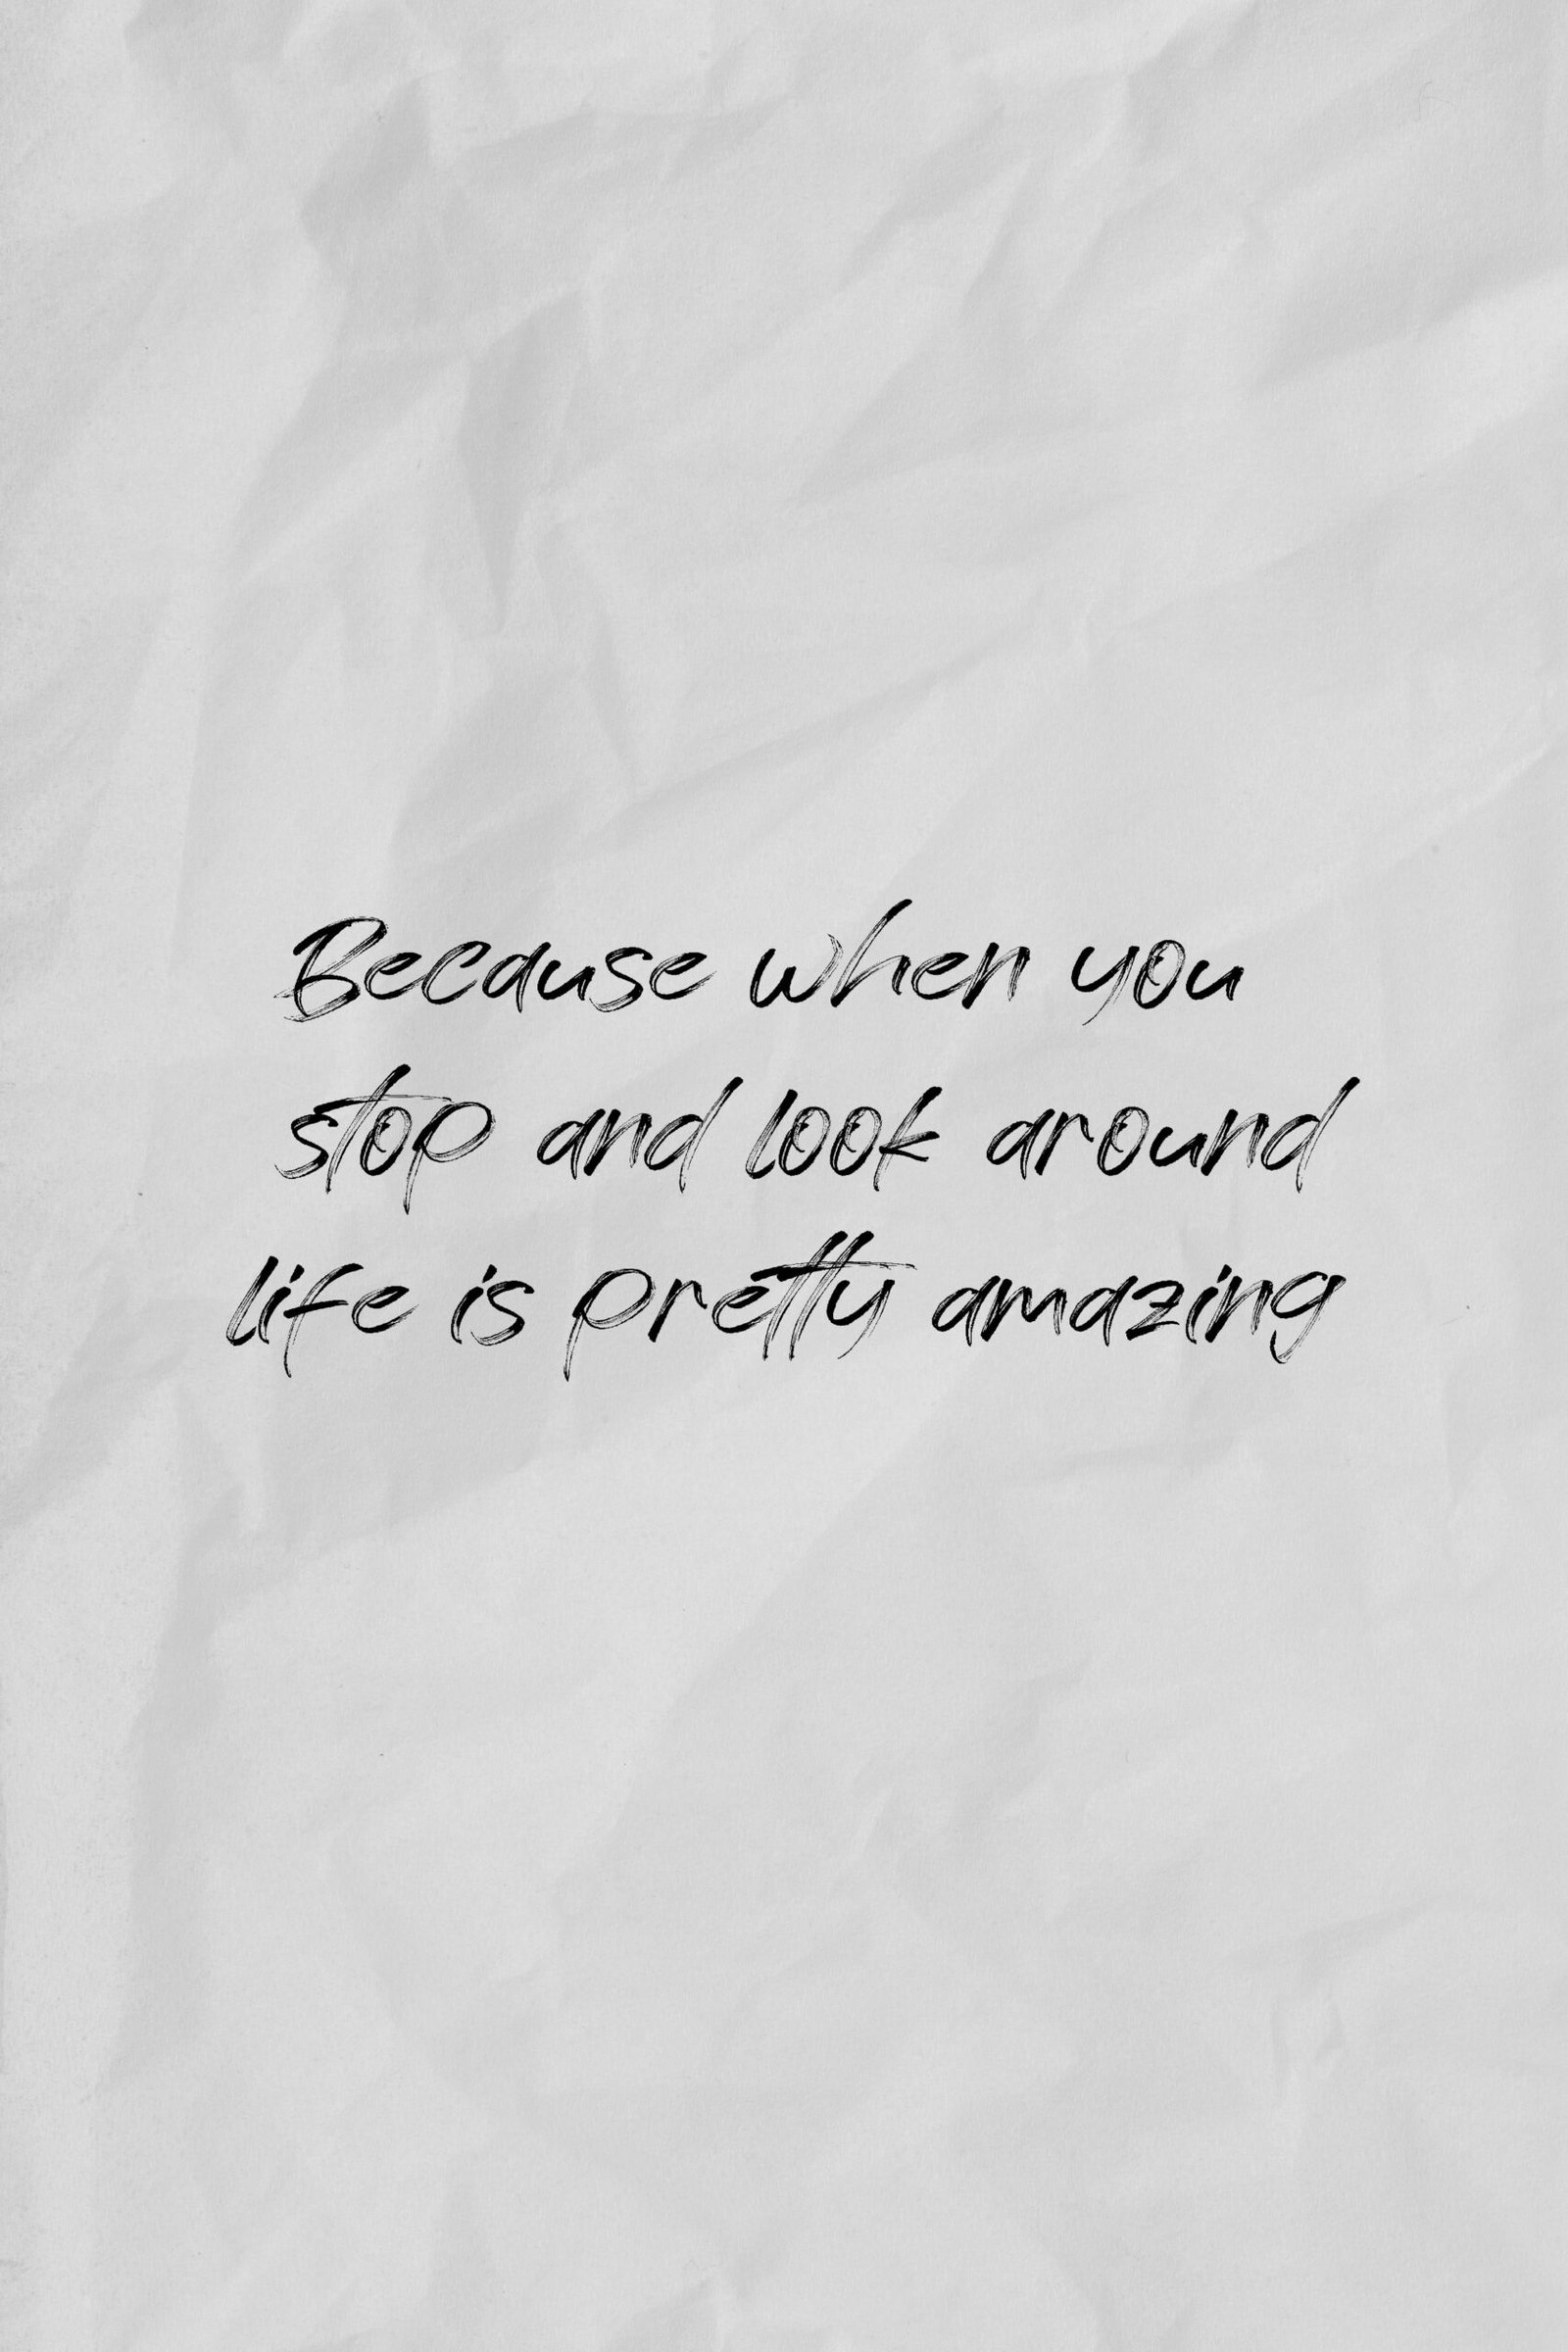 Because when you
stop and look around
life is pretty amazing